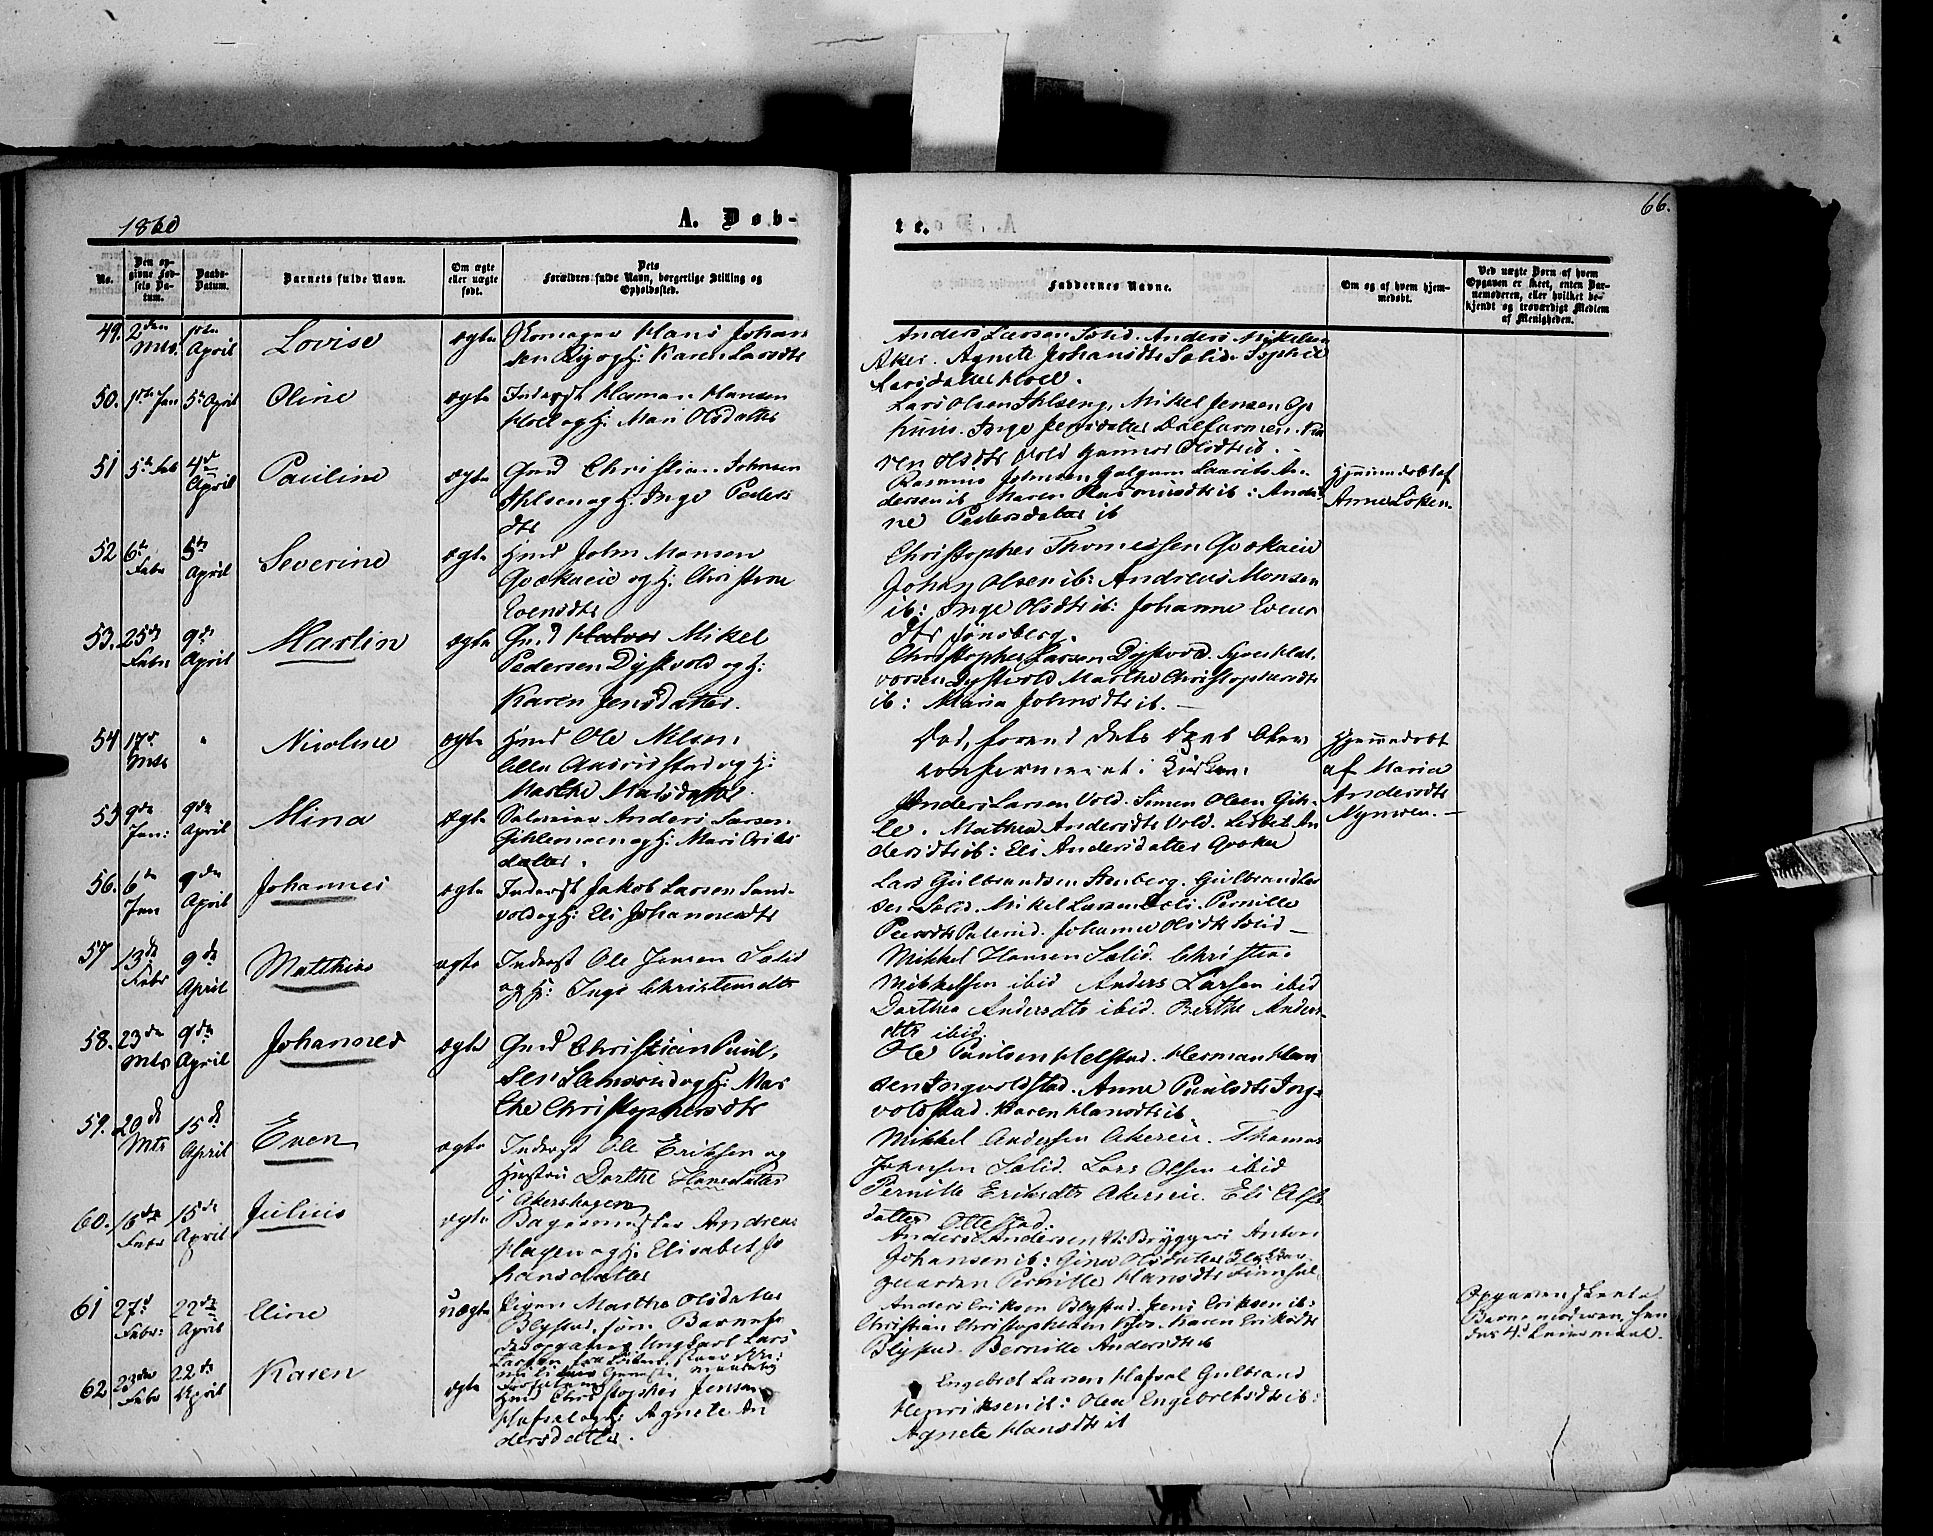 1860
A. Døb-
te.
66.
No.
Den op-
givne Fød-
sels Da-
tum.
Daabs-
Datum.
Barnets fulde Navn.
Om ægte
eller uægte
født.
Dets
Forældres fulde Navn, borgerlige Stilling og
Opholdssted.
Faddernes Navne.
Om og af hvem hjem-
medøbt.
Ved uægte Børn af hvem
Opgaven er skeet, enten Bar-
nemoderen, eller hvilket be-
kjendt og troværdigt Medlem
af Menigheden.
49. 2den Mts. 1ste April Lovise ægte
Hans Johan
sen og H: Karen Larsdtr
Anders Larsen Sælid. Anders Mikelsen
Aker. Agnete Johansdtr Sælid. Sophie
Larsdatter Hoel.
50. 1ste Jan 5te April Oline ægte
Inderst Herman Hansen
Hoel og H: Mari Olsdatter
Lars Olsen Ihlseng, Mikel Jensen Op
huus. Inge Jensdatter Dælsarmen. Ka
ren Olsdtr Vold Gunnor Olsdtr ib.
51 5te Feb 4de April Pauline ægte
Gmd Christian Johnsen
Ihlsen og H: Inge Peders
dtr
Rasmus Johnsen Galgum Laurits An
dersen ib Maren Rasmusdtr ib: Andri
ne Pedersdatter ib
Hjemmedøbt af
Anne Løken.
52 6te Febr 5te April Severine ægte
Hmd John Monsen
Qvækeie og H: Christine
Evensdtr
Christopher Thomessen Qvækeie
Johan Olsen ib: Andreas Monsen
ib: Inge Olsdtr ib: Johanne Evens
dtr Jønsberg.
53. 25de Febr 9de April Martin ægte
Gmd Halvor Mikel
Pedersen Dystvold og H:
Karen Jensdatter.
Christopher Larsen Dystvold. Syver Hal-
vorsen Dystvold Marthe Christophersdtr
ib: Maria Johnsdtr ib. —
54 17de Mts " Nicoline ægte
Hmd Ole Nilsen
lille og H:
Marthe Matsdatter.
Død, førend dets Daab blev
confirmeret i Kirken.
Hjemmedøbt
af Maria
Andersdtr
Nymoen. —
55 9de Jan: 9de April Mina ægte
Anders Larsen
Gihlemoen og H: Mari Eriks
datter.
Anders Larsen Vold. Simen Olsen Gih-
le. Mathea Andersdtr Vold. Lisbet An
dersdtr ib: Eli Andersdatter
56. 6te Jan 9de April Johannes ægte
Inderst Jakob Larsen Sand-
vold og H: Eli Johannesdtr
Lars Gulbrandsen Stenberg. Gulbrand Lar
sen Sælid. Mikel Larsen Sæli. Pernille
Johanne Olsdtr Sælid —
57 13de Febr 9de April Matthias ægte
Inderst Ole Jensen Sælid
og H: Inge Christensdtr
Mikkel Hansen Sælid. Christian
Mikkelsen ibid Anders Larsen ibid
Dorthea Andersdtr ibid. Berthe Anders-
dtr ibid.
58. 23de Mts 9de April Johannes ægte
Gmd Christian Paul-
sen og H: Mar
the Christophersdtr
Ole Paulsen Helstad. Herman Han
sen Ingvoldstad. Anne Paulsdtr Ing-
voldstad. Karen Hansdtr ib.
59. 20de Mts 15de April Even ægte
Inderst Ole Eriksen og
Hustru Dorthe Hansdatter
i Akershagen
Mikkel Andersen Akereie. Thomas
Johnsen Sælid. Lars Olsen ibid
Pernille Eriksdtr Akereie. Eli Olss
datter Ottestad.
60. 16de Febr 15de April Julius ægte
Bagermester Andreas
Hagen og H: Elisabet Jo
hansdatter
Anders Andersen Bryggeri Anton
Johansen ib: Gina Olsdatter
gaarden Pernille Hansdtr
61 27de Febr: 22de April Eline uægte
Pigen Marthe Olsdatter
Blystad, som Barnefa
der opgaves Ungkarl Lars
Larsen
Anders Eriksen Blystad. Jens Eriksen ib:
Christian Christophersen Karen Eriksdtr
Blystad. Bernille Andersdtr ib
Opgaven skeet af
Barnemoderen, hen
des 4de Leiermaal.
62 23de Febr 22de April Karen ægte
Hmd Christopher Jensen
Hafsal og H: Agnete An
dersdatter.
Engebret Larsen Hafsal Gulbrand
Henriksen ib: Olea Engebretsdtr ib:
Agnete Hansdtr ib